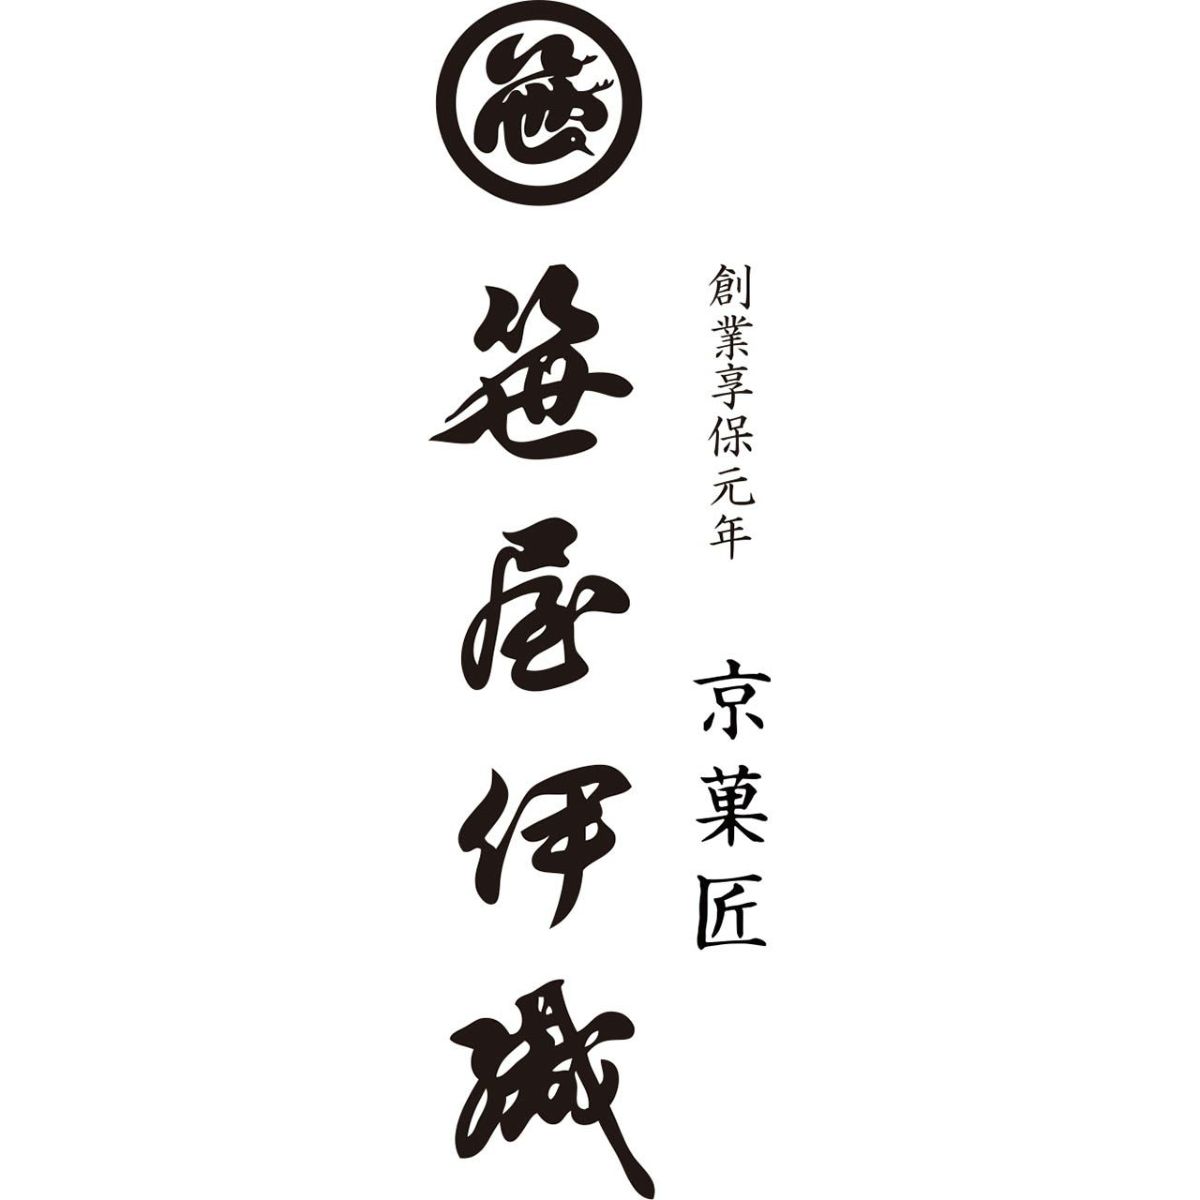 創業享保元年 京菓匠
笹屋伊織